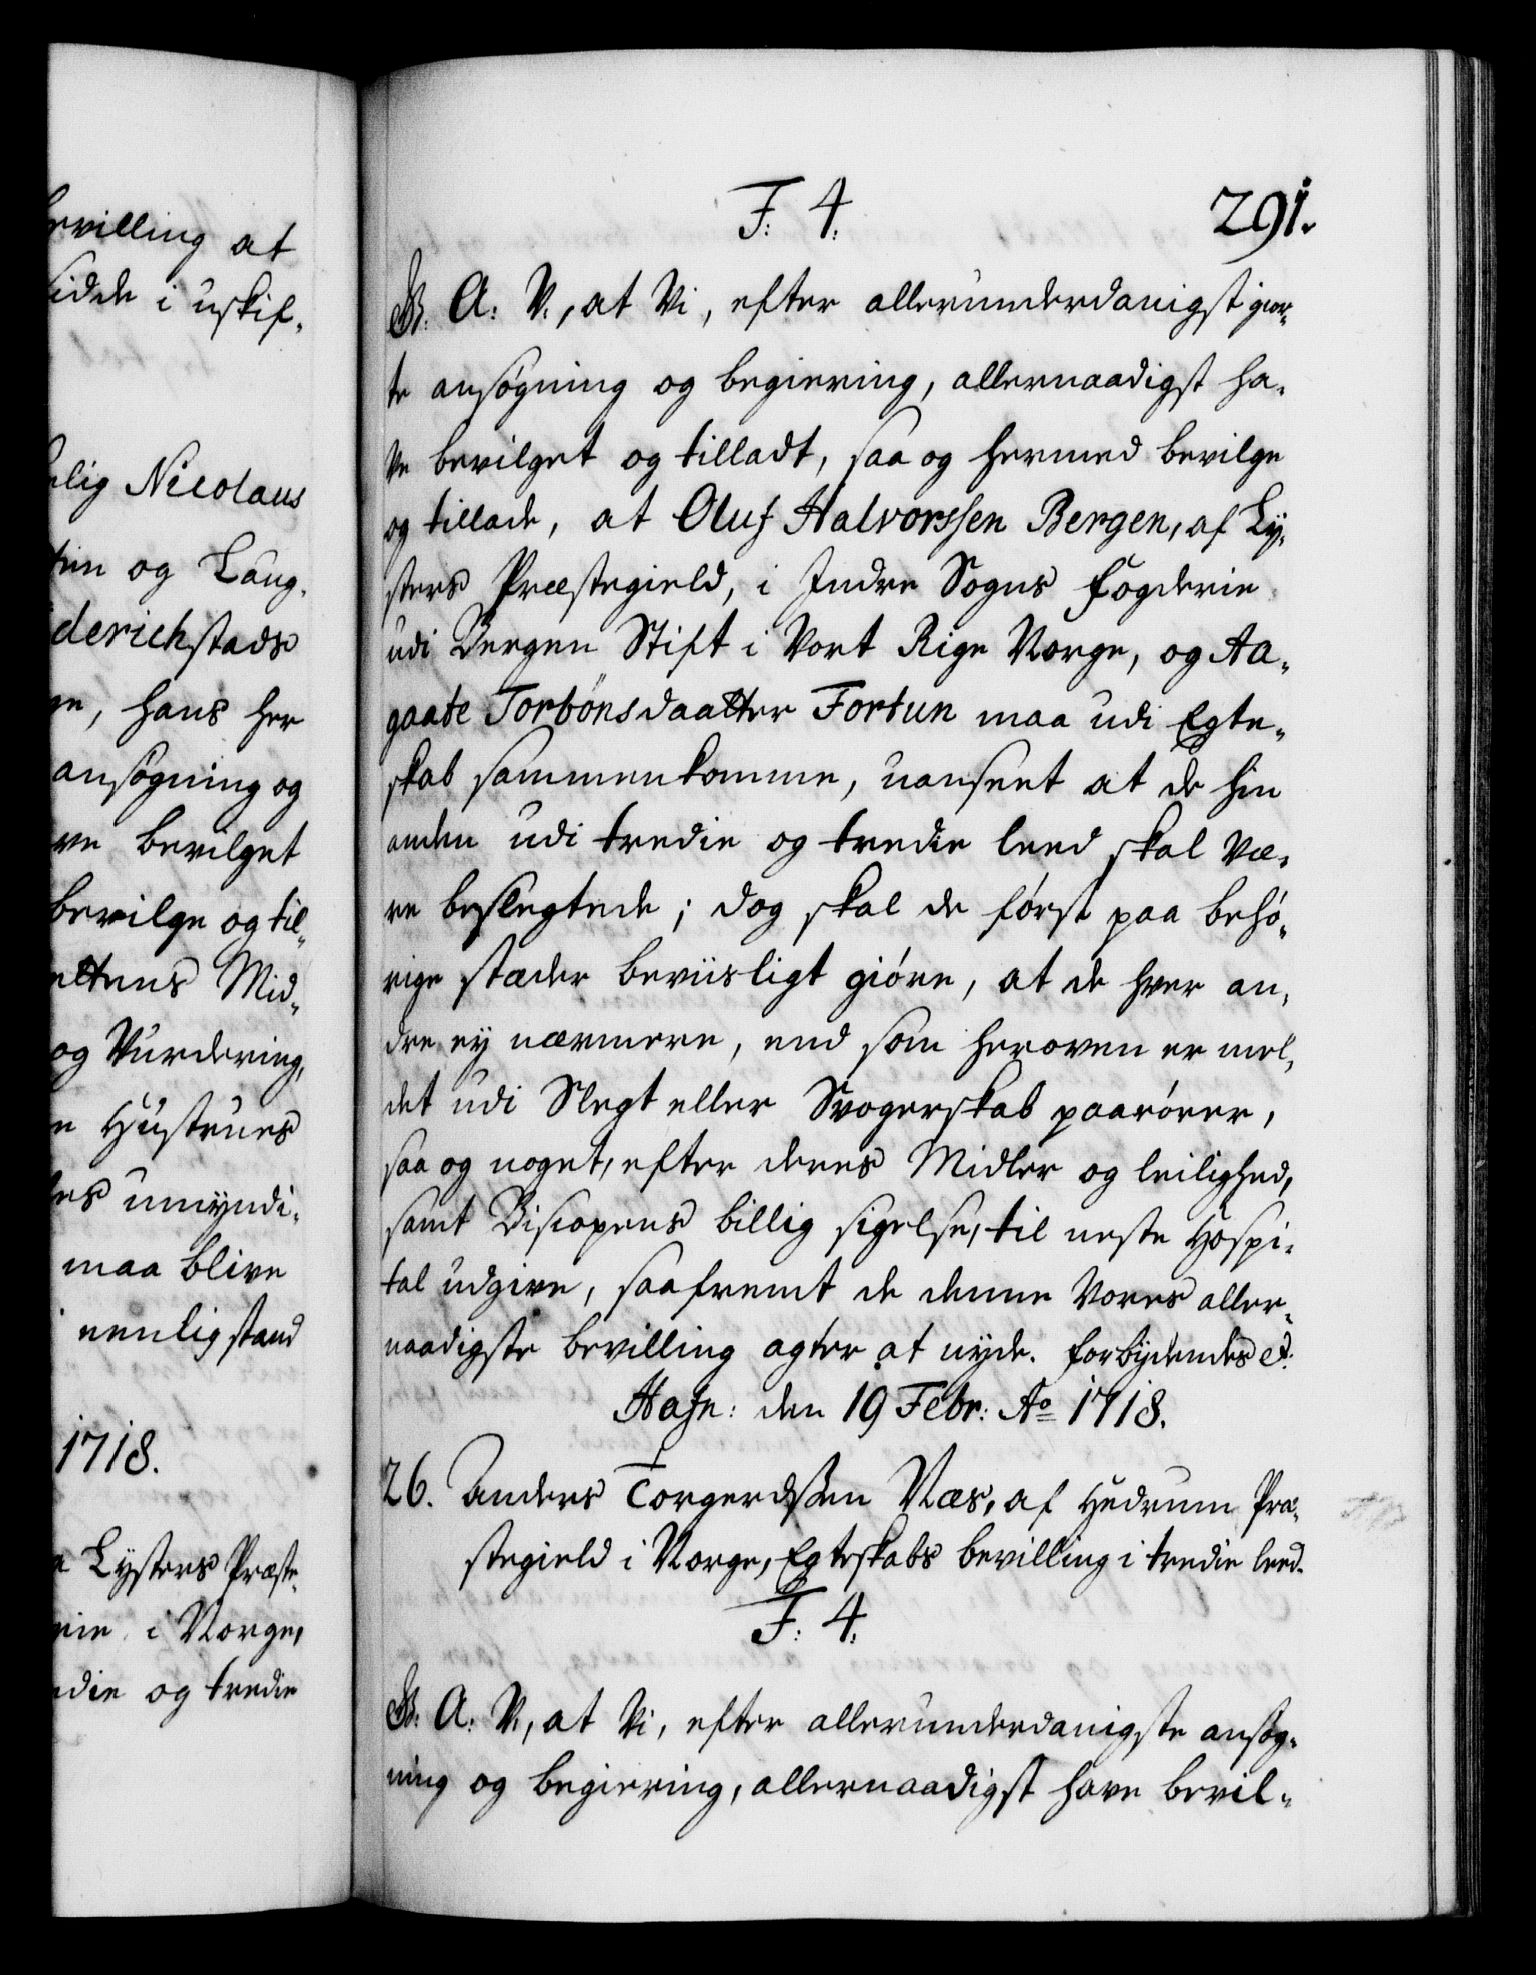 ervilling at
sidde i uskif-
elig Nicolaus
tien og Laug-
iderichstads
ge, hans her
ansøgning og
ve bevilget
bevilge og til-
ettens Mid-
og Vurdering,
e Hustrues
es umyndi-
maa blive
nenlig stand
1718.
Lysters Præste-
rie i Norge,
edie og tredie
F: 4. 291.
G: A: V:, at Vi, efter allerunderdanigst gior-
te ansøgning og begiering, allernaadigst ha-
ve bevilget og tilladt, saa og hermed bevilge
og tillade, at Oluf Halvorssen Bergen, af Ly-
sters Præstegield, i Indre Sogns Fogderie
udi Bergen Stift i Vort Rige Norge, og Aa-
gaate Torbönsdaatter Fortun maa udi Egte-
skab sammenkomme, uanseet at de hin
anden udi tredie og tredie leed skal væ-
re beslegtede; dog skal de først paa behø-
rige stæder beviisligt giøre, at de hver an-
dre ey nærmere, end som heroven er mel-
det udi Slegt eller Svogerskab paarører,
saa og noget, efter deres Midler og leilighed,
samt Biscopens billig sigelse, til neste Hospi-
tal udgive, saafremt de denne Vores aller-
naadigste bevilling agter at nyde. Forbydendes &.
Hafn: den 19 Febr: Ao 1718.
26. Anders Torgerdssen Næs, af Hedrum Præ-
stegield i Norge, Egteskabs bevilling i tredie leed.
F: 4.
G: A: V:, at Vi, efter allerunderdanigste ansøg-
ning og begiering, allernaadigst have bevil-